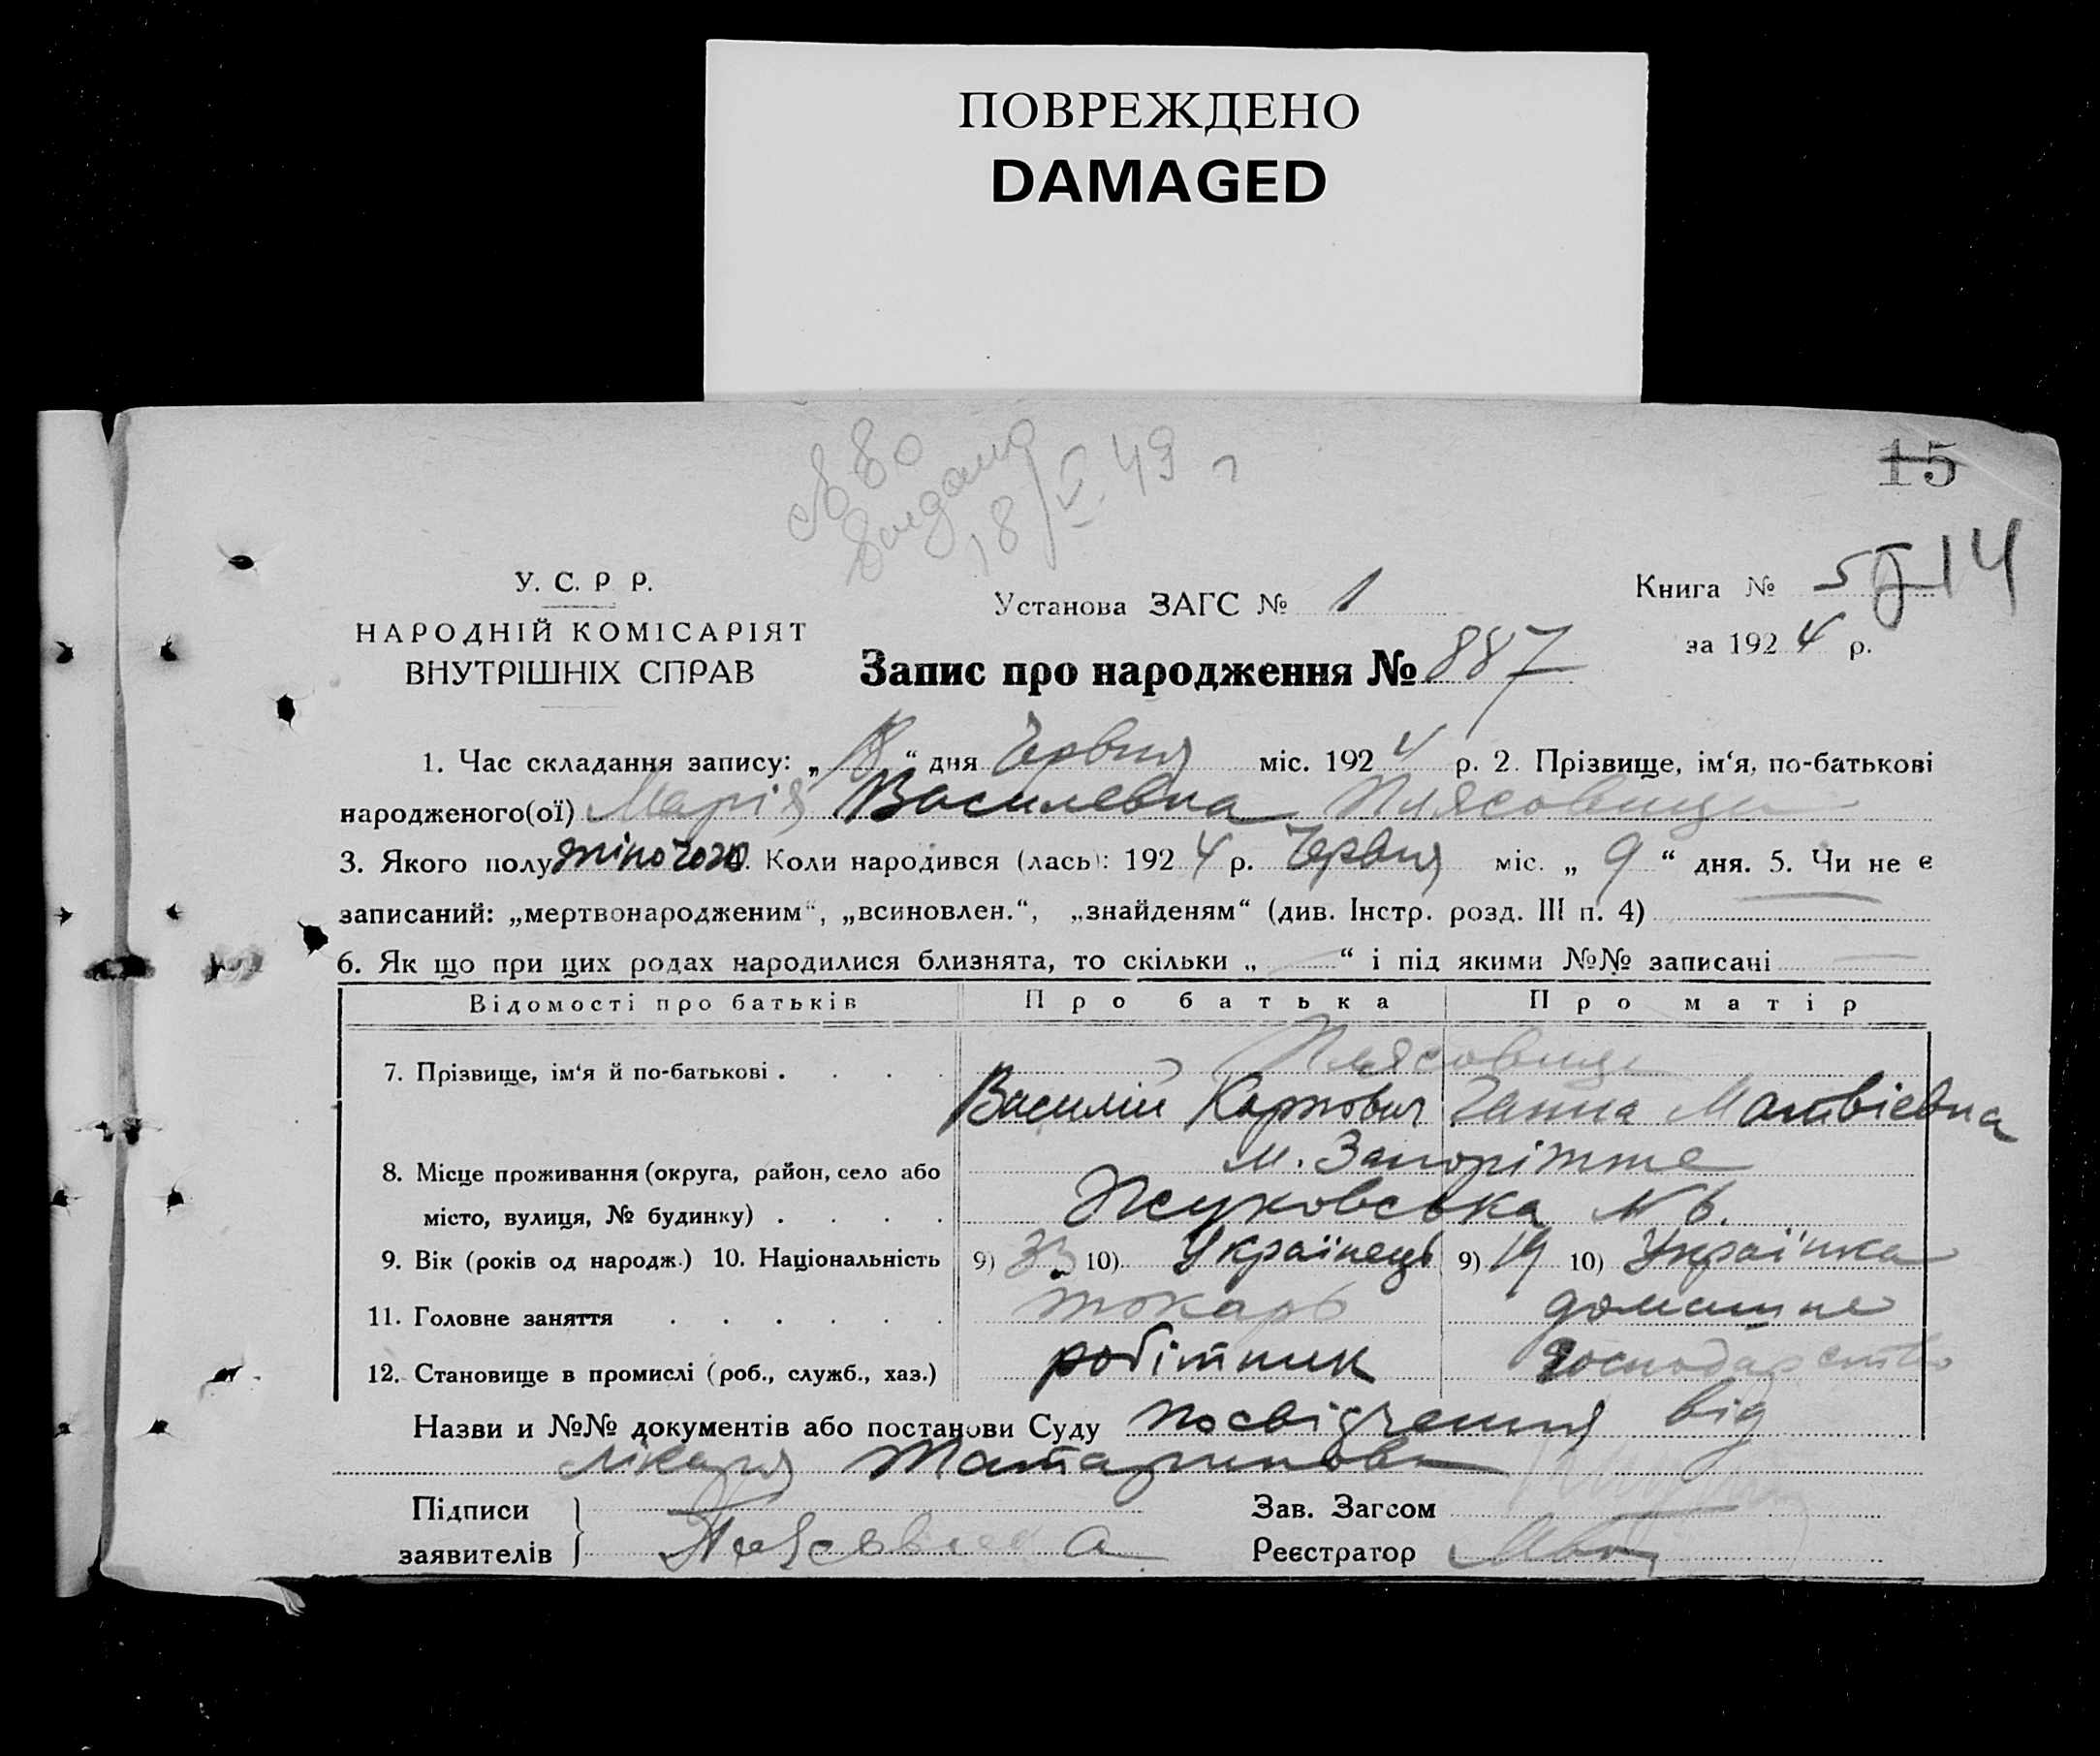 ПОВРЕЖДЕНО
DAMAGED
18/V. 49 г
15
У. С. Р Р.
НАРОДНІЙ КОМІСАРІЯТ
ВНУТРІШНІХ СПРАВ
Установа ЗАГС № 1
Запис про народження № 887
Книга № 14
за 1924 р.
1. Час складання запису: „18“ дня Червня міс. 1924 р. 2. Прізвище, ім‘я, по-батькові
народженого(ої) Марія Василевна
3. Якого полу жіночого 4. Коли народився (лась): 1924 р. Червня міс. „ 9 “ дня. 5. Чи не є
записаний: „мертвонародженим“, „всиновлен.“, „знайденям“ (див. Інстр. розд. III п. 4)
6. Як що при цих родах народилися близнята, то скільки „ “ і під якими №№ записані
Відомості про батьків Про батька Про матір
7. Прізвище, ім‘я й по-батькові .
Василий Карпович Ганна Матвієвна
8. Місце проживання (округа, район, село або м. Запоріжже
місто, вулиця, № будинку) . Жуковська № 6.
9. Вік (років од народж.) 10. Національність 9) 33 10) Українець 9) 19 10) Українка
11. Головне заняття токарь домашне
12. Становище в промислі (роб., служб., хаз.) робітник господарство
Назви и №№ документів або постанови Суду посвідчення від
лікаря
Підписи
заявителів
Зав. Загсом
Реєстратор